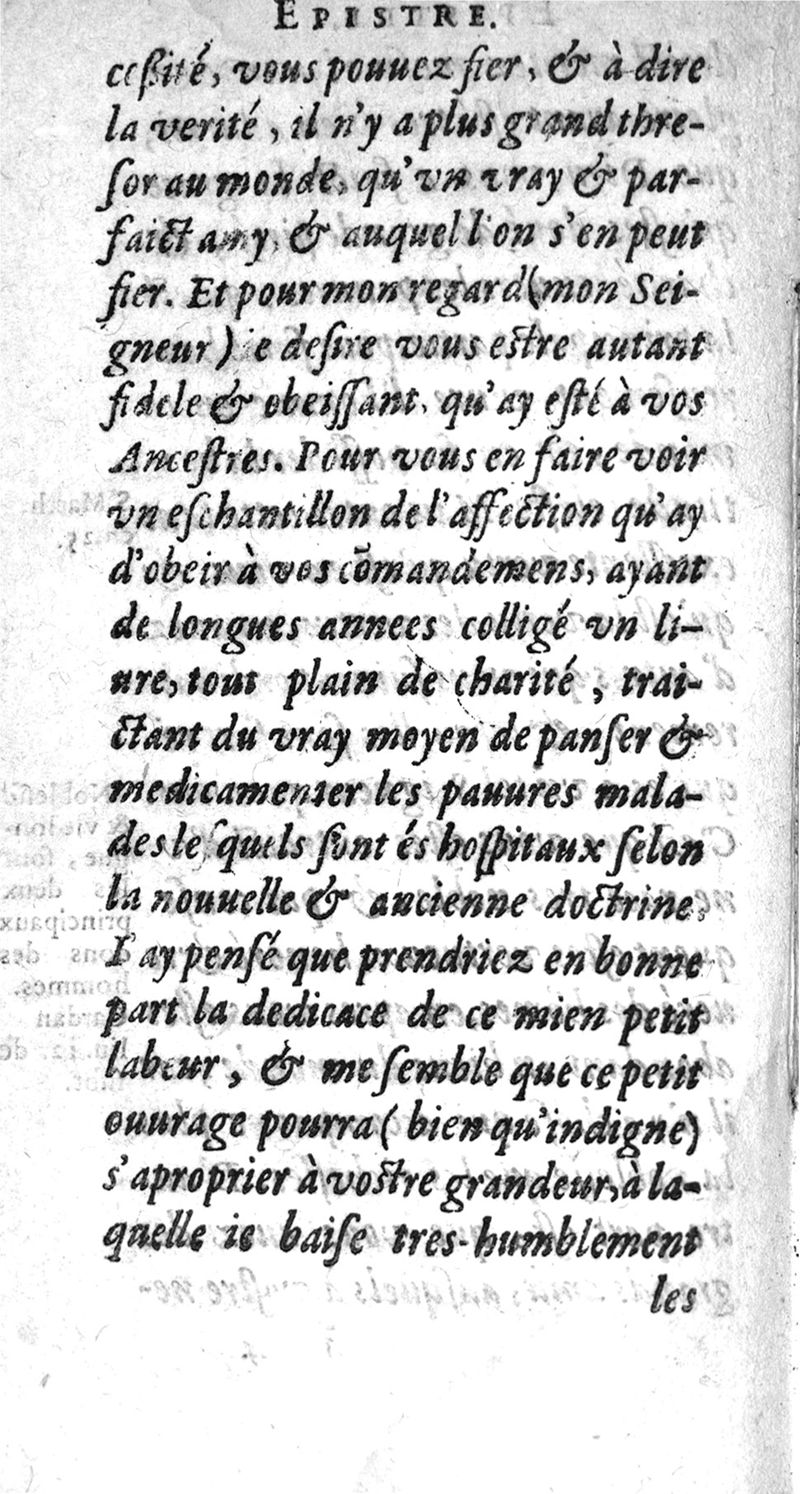 EPISTRE.
ceßité, vous pouuez fier, & à dire
la verité, il n'y a plus grand thre-
ſor au monde, qu'vn vray & par-
faict amy, & auquel l'on s'en peut
fier. Et pour mon regard (mon Sei-
gneur) ie deſire vous eſtre autant
fidele & obeiſſant, qu'ay eſté à vos
Anceſtres. Pour vous en faire voir
vn eſchantillon de l'affection qu'ay
d'obeir à vos cōmandemens, ayant
de longues annees colligé vn li-
ure, tout plain de charité, trai-
ctant du vray moyen de panſer &
medicamenter les pauures mala-
des leſquels ſont és hoſpitaux ſelon
la nouuelle & ancienne doctrine.
I'ay penſé que prendriez en bonne
part la dedicace de ce mien petit
labeur, & me ſemble que ce petit
ouurage pourra (bien qu'indigne)
s'aproprier à voſtre grandeur, à la-
quelle ie baiſe tres-humblement
les